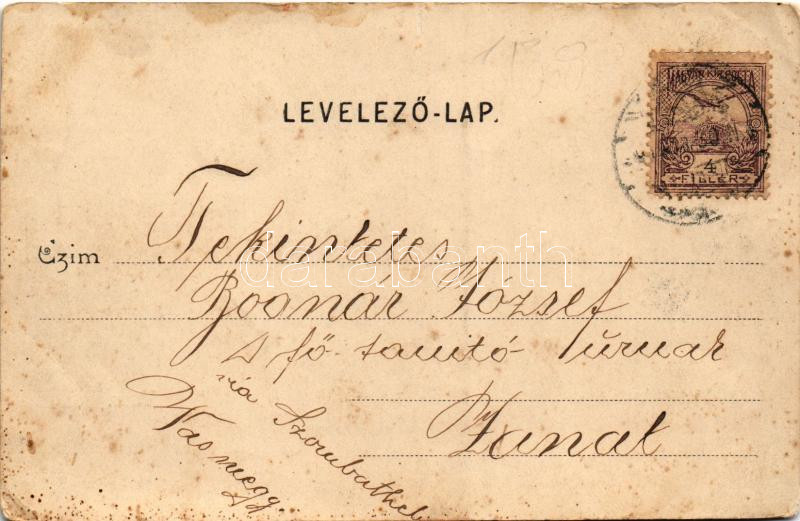 LEVELEZŐ-LAP.
MAGYAR KIR. POSTA
4
FILLÉR
Czim Tekintetes
Bognár József
fő tanitó úrnak
Zanat
via Szombathely
Vasmegy
darabanth